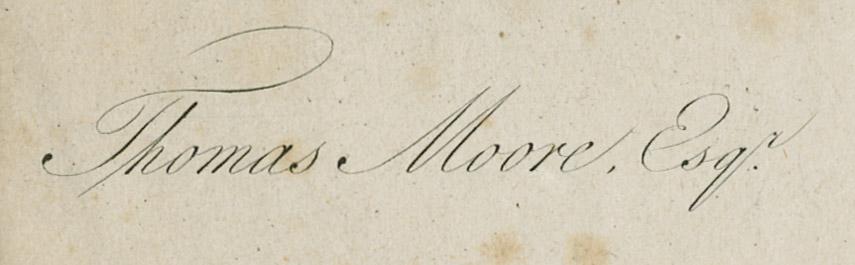 Thomas Moore, Esqr.